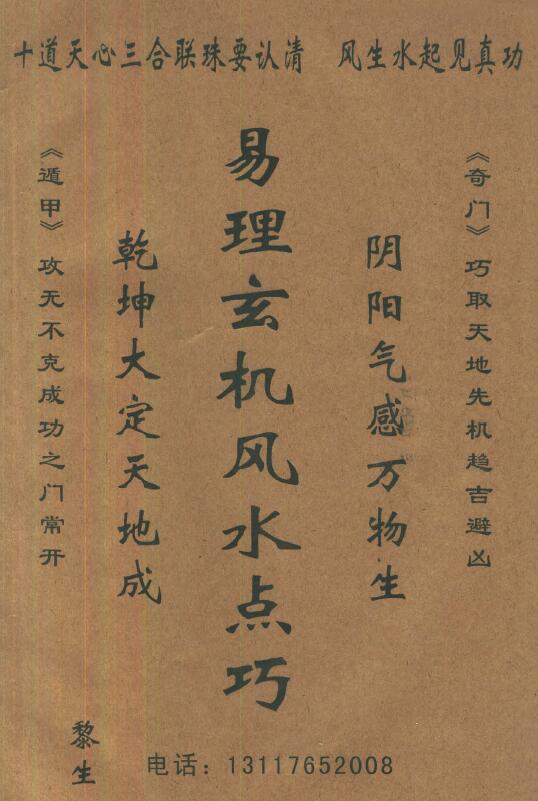 十道天心三合联珠要认清 风生水起见真功
《奇门》巧取天地先机趋吉避凶
阴阳气感万物生
易理玄机风水点巧
乾坤大定天地成
《遁甲》攻无不克成功之门常开
黎生
电话：13117652008